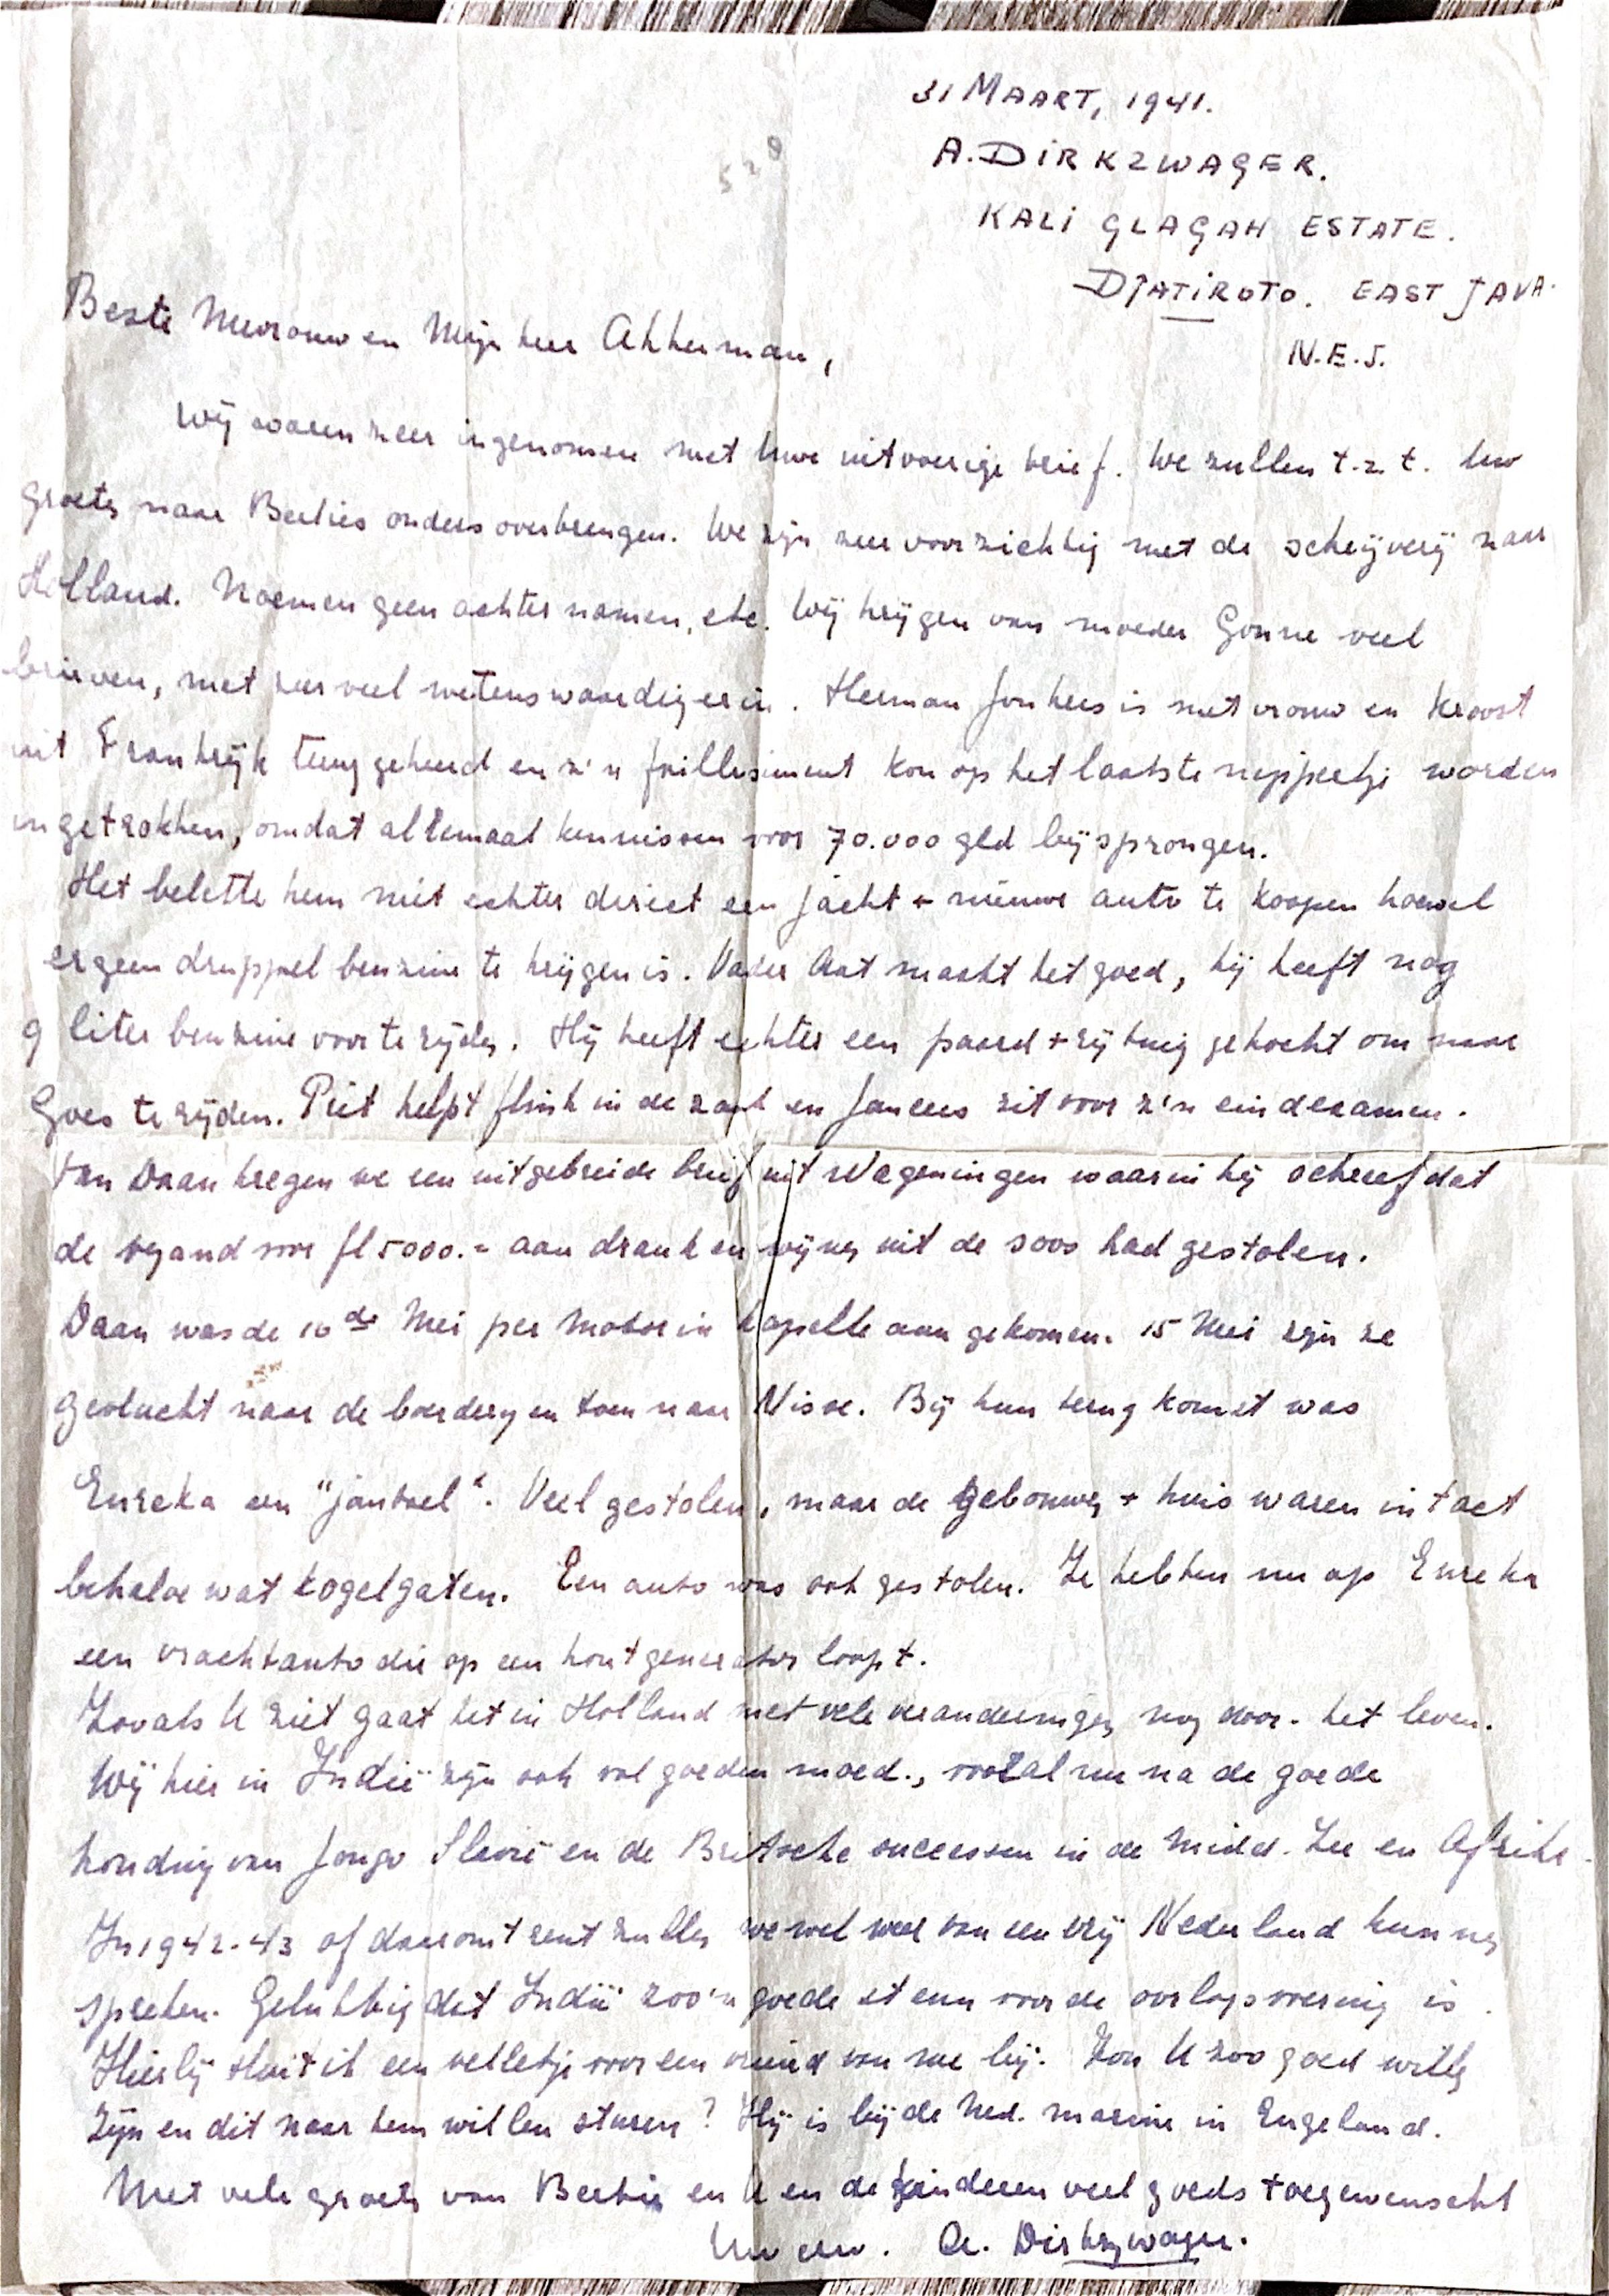 31 MAART, 1941.
A. DIRKZWAGER.
KALI GLAGAH ESTATE.
DJATIROTO. EAST JAVA.
N.E.J.
Beste Mevrouw en Mijnheer Akkerman,
Wij waren zeer ingenomen met Uwe uitvoerige brief. We zullen t.z.t. Uw
groeten naar Berties ouders overbrengen. We zijn zeer voorzichtig met de schrijverij naar
Holland. Noemen geen achternamen, etc. Wij krijgen van moeder Gonne veel
brieven, met zeer veel wetenswaardig erin. Herman Jonkers is met vrouw en kroost
uit Frankrijk teruggekeerd en z'n faillissement kon op het laatste nippertje worden
ingetrokken, omdat allemaal kennissen voor 70.000 gld bijsprongen.
Het belette hem niet echter direct een jacht + nieuwe auto te koopen hoewel
er geen druppel benzine te krijgen is. Vader Aat maakt het goed, hij heeft nog
9 liter benzine voor te rijden. Hij heeft echter een paard + rijtuig gekocht om naar
Goes te rijden. Piet helpt flink in de zaak en Jancees zit voor z'n eindexamen.
Van Daan kregen we een uitgebreide brief uit Wageningen waarin hij schreef dat
de vyand voor fl 5000.- aan drank en wijnen uit de soos had gestolen.
Daan was de 10de Mei per motor in Kapelle aangekomen. 15 Mei zijn ze
gevlucht naar de boerdery en toen naar Nisse. Bij hun terugkomst was
Eureka een "janboel". Veel gestolen, maar de gebouwen + huis waren intact
behalve wat kogelgaten. Een auto was ook gestolen. Ze hebben nu op Eureka
een vrachtauto die op een houtgenerator loopt.
Zooals U ziet gaat het in Holland met vele veranderingen nog door. het leven.
Wij hier in Indië zijn ook vol goeden moed., vooral nu na de goede
houding van Jougo Slavië en de Britsche successen in de Midd. Zee en Afrika.
In 1942-43 of daaromtrent zullen we wel weer van een vrij Nederland kunnen
spreken. Gelukkig dat Indië zoo'n goede steun voor de oorlogsvoering is.
Hierbij sluit ik een velletje voor een vriend van me bij. Zou U zoo goed willen
zijn en dit naar hem willen sturen? Hij is bij de Ned. marine in Engeland.
Met vele groeten van Bertie en U en de kinderen veel goeds toegewenscht
Uw A. Dirkzwager.